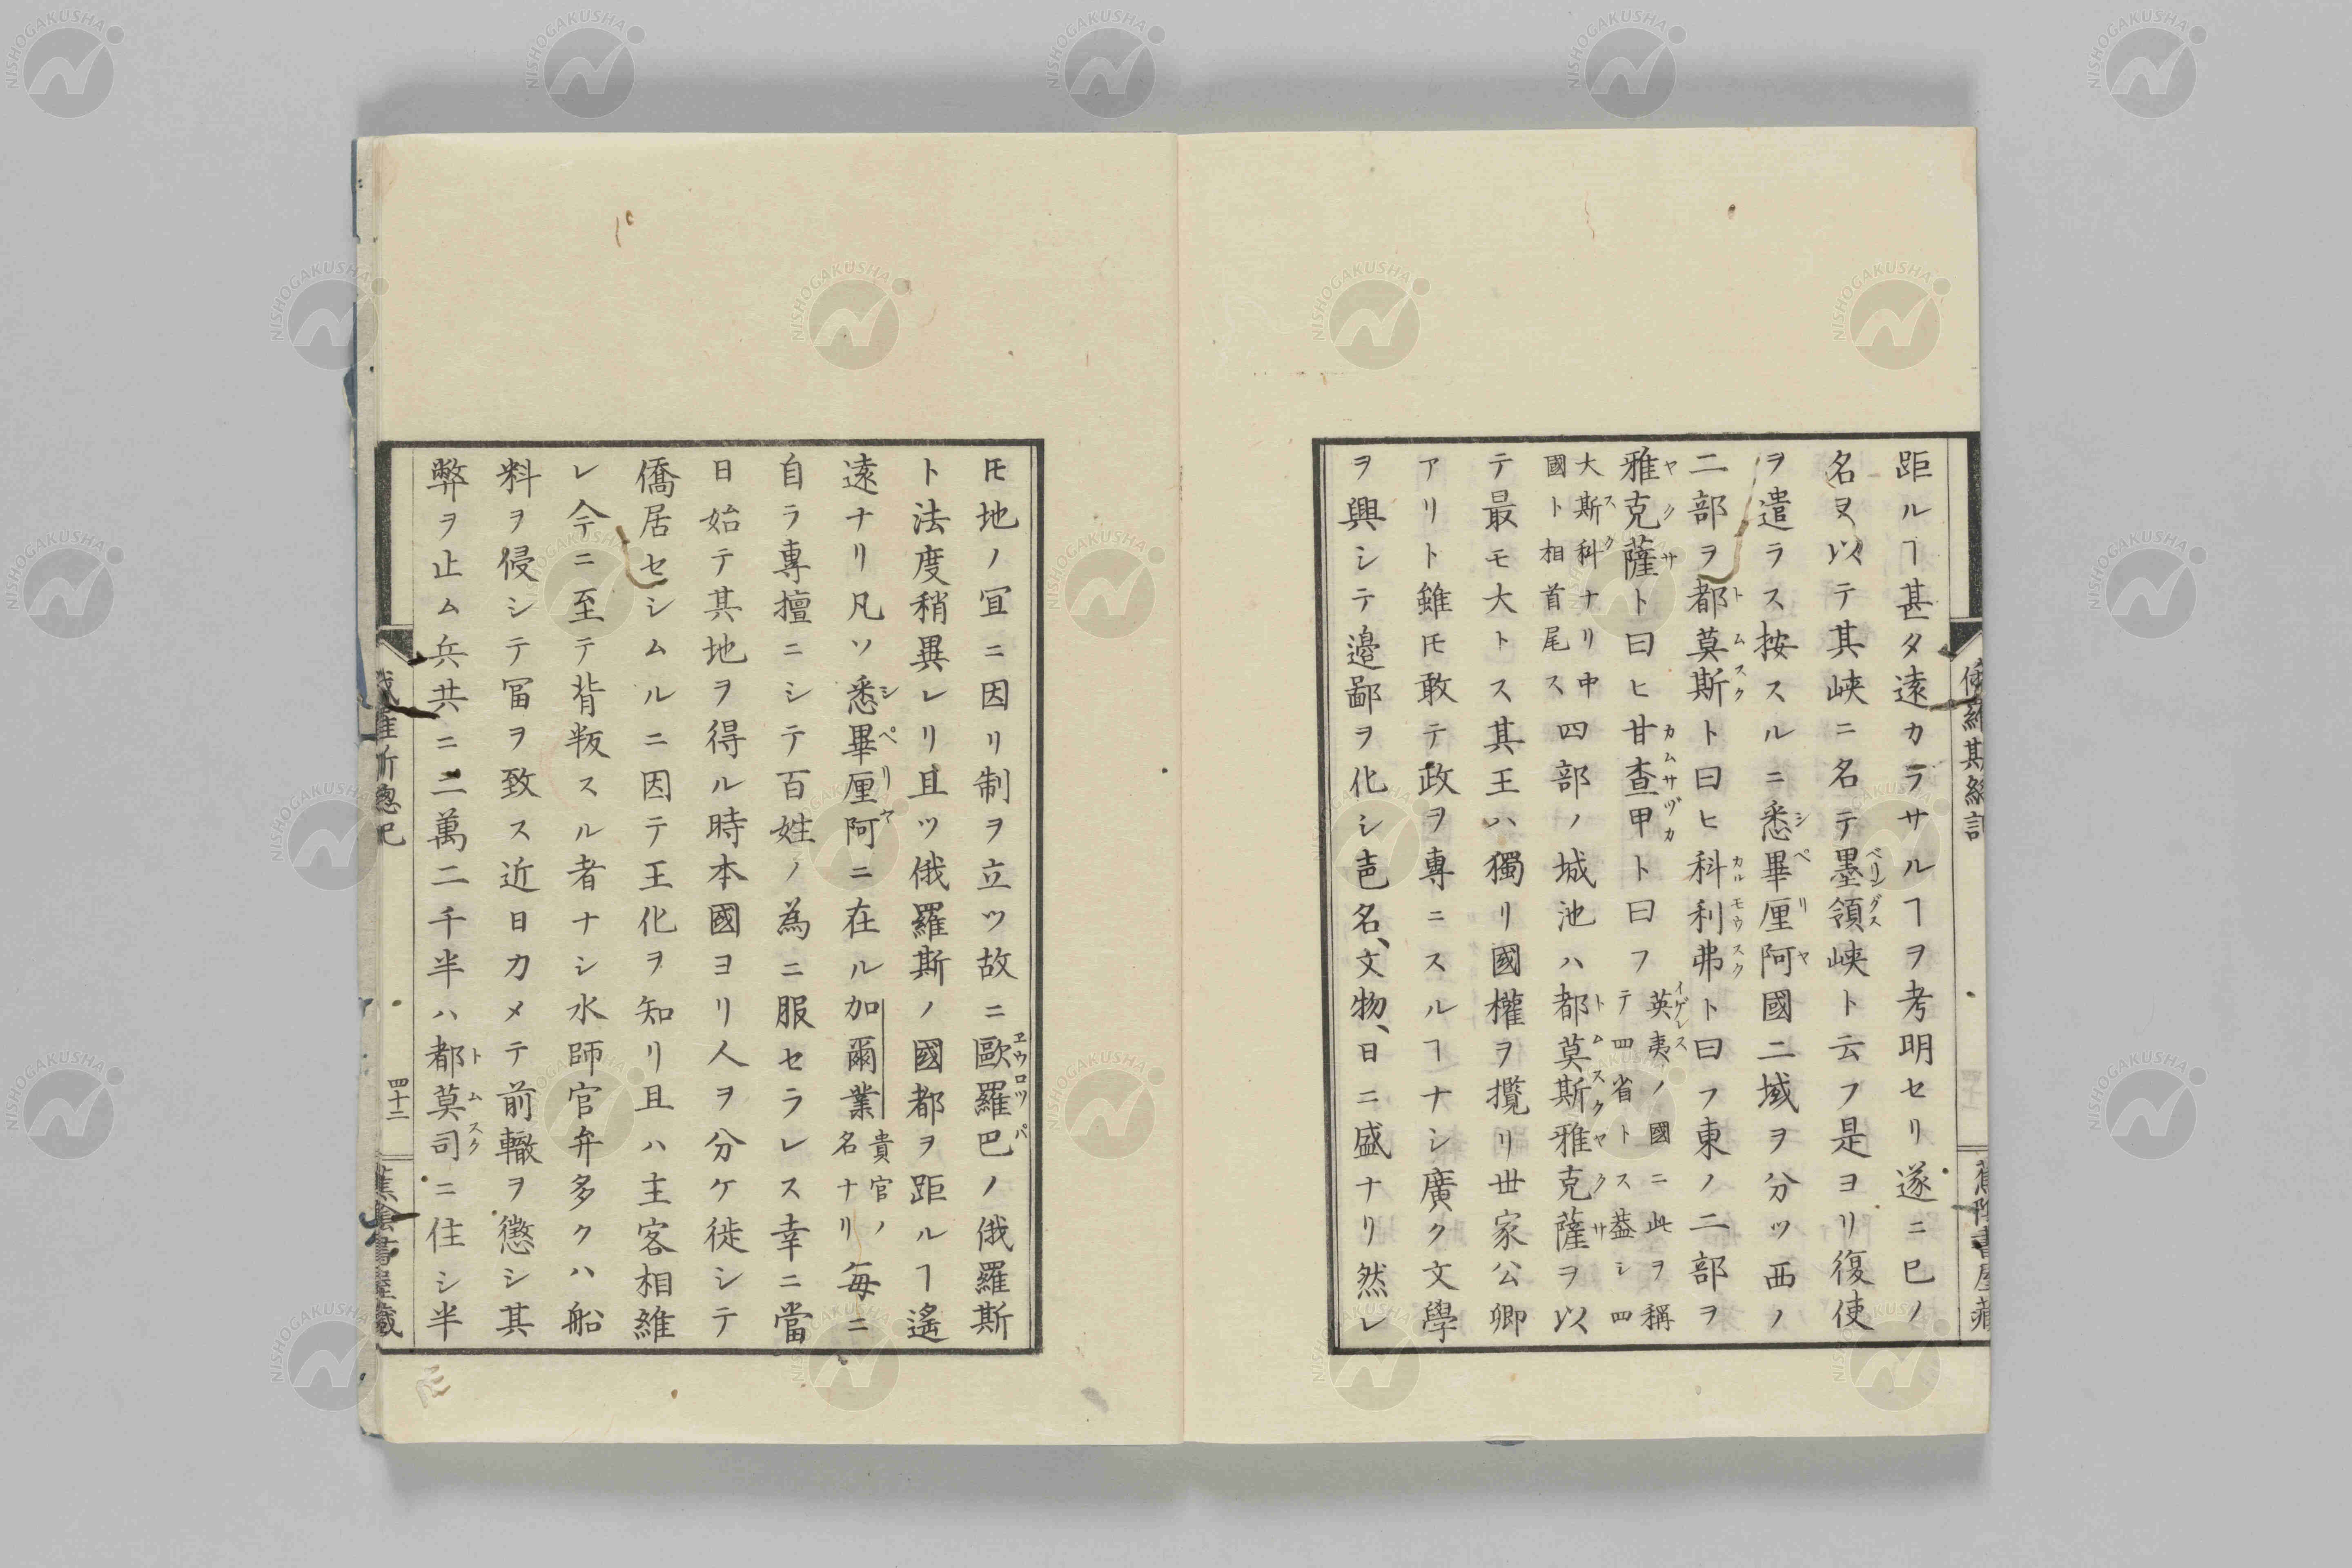 距ルヿ甚タ遠カラサルヿヲ考明セリ遂ニ巳ノ
名ヲ以テ其峡ニ名テ墨領峡ト云フ是ヨリ復使
ヲ遣ラス按スルニ悉畢厘阿國二域ヲ分ツ西ノ
二部ヲ都莫斯ト曰ヒ科利弗ト曰フ東ノ二部ヲ
雅克薩ト曰ヒ甘査甲ト曰フ英夷ノ國ニ此ヲ稱
テ四省トス蓋シ四
大斯科ナリ中
國ト相首尾ス
四部ノ城池ハ都莫斯雅克薩ヲ以
テ最モ大トス其王ハ獨リ國權ヲ攬リ丗家公卿
アリト雖㠪敢テ政ヲ專ニスルヿナシ廣ク文學
ヲ興シテ邉鄙ヲ化シ声名、文物、日ニ盛ナリ然レ
㠪地ノ宜ニ因リ制ヲ立ツ故ニ歐羅巴ノ俄羅斯
ト法度稍異レリ且ツ俄羅斯ノ國都ヲ距ルヿ遙
遠ナリ凡ソ悉畢厘阿ニ在ル加爾業貴官ノ
名ナリ
毎ニ
自ラ專擅ニシテ百姓ノ為ニ服セラレス幸ニ當
日始テ其地ヲ得ル時本國ヨリ人ヲ分ケ徙シテ
僑居セシムルニ因テ王化ヲ知リ且ハ主客相維
レ今ニ至テ背叛スル者ナシ水師官弁多クハ船
料ヲ侵シテ冨ヲ致ス近日カメテ前轍ヲ懲シ其
弊ヲ止ム兵共ニ二萬二千半ハ都莫司ニ住シ半
四十二